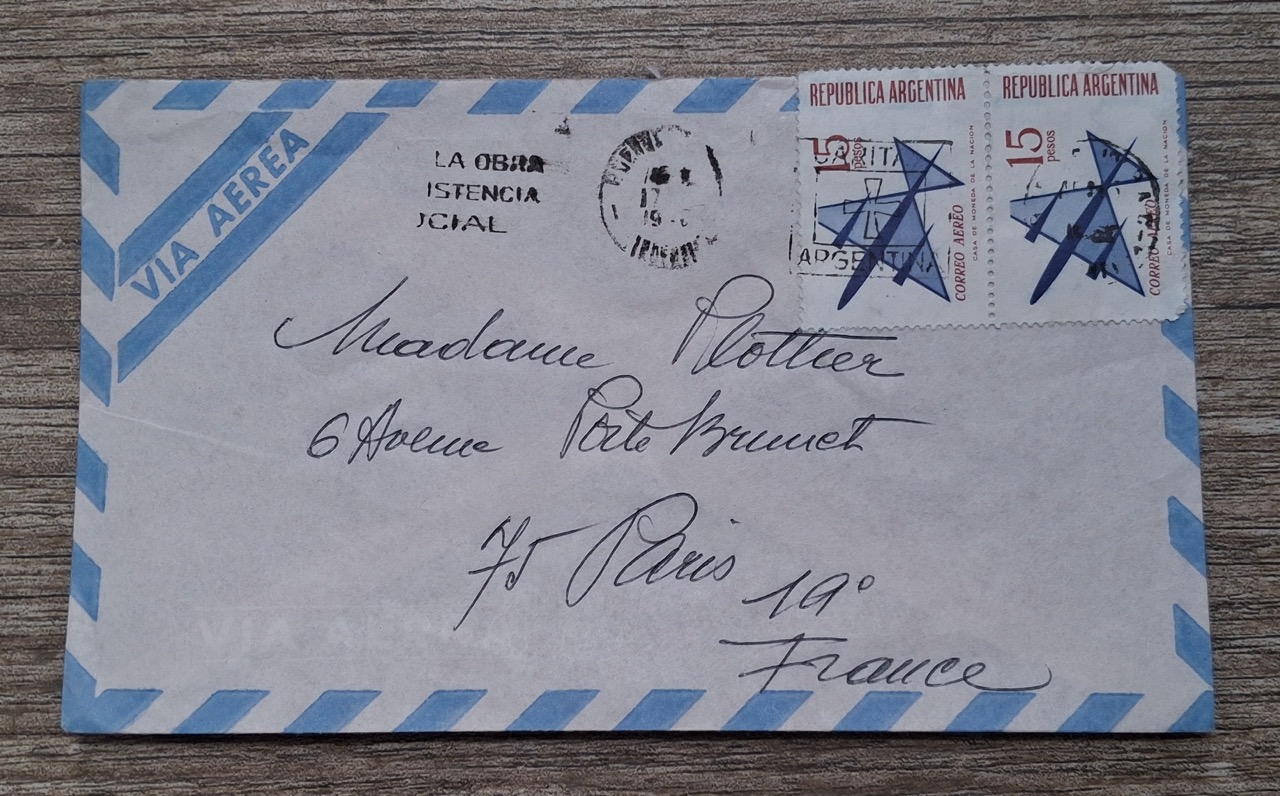 REPUBLICA ARGENTINA
REPUBLICA ARGENTINA
15 pesos
15 pesos
CORREO AEREO
CORREO AEREO
CASA DE MONEDA DE LA NACION
CASA DE MONEDA DE LA NACION
VIA AEREA
LA OBRA
ISTENCIA
CIAL
ARGENTINA
Madame Plottier
6 Avenue Porte Brunet
75 Paris 19°
France